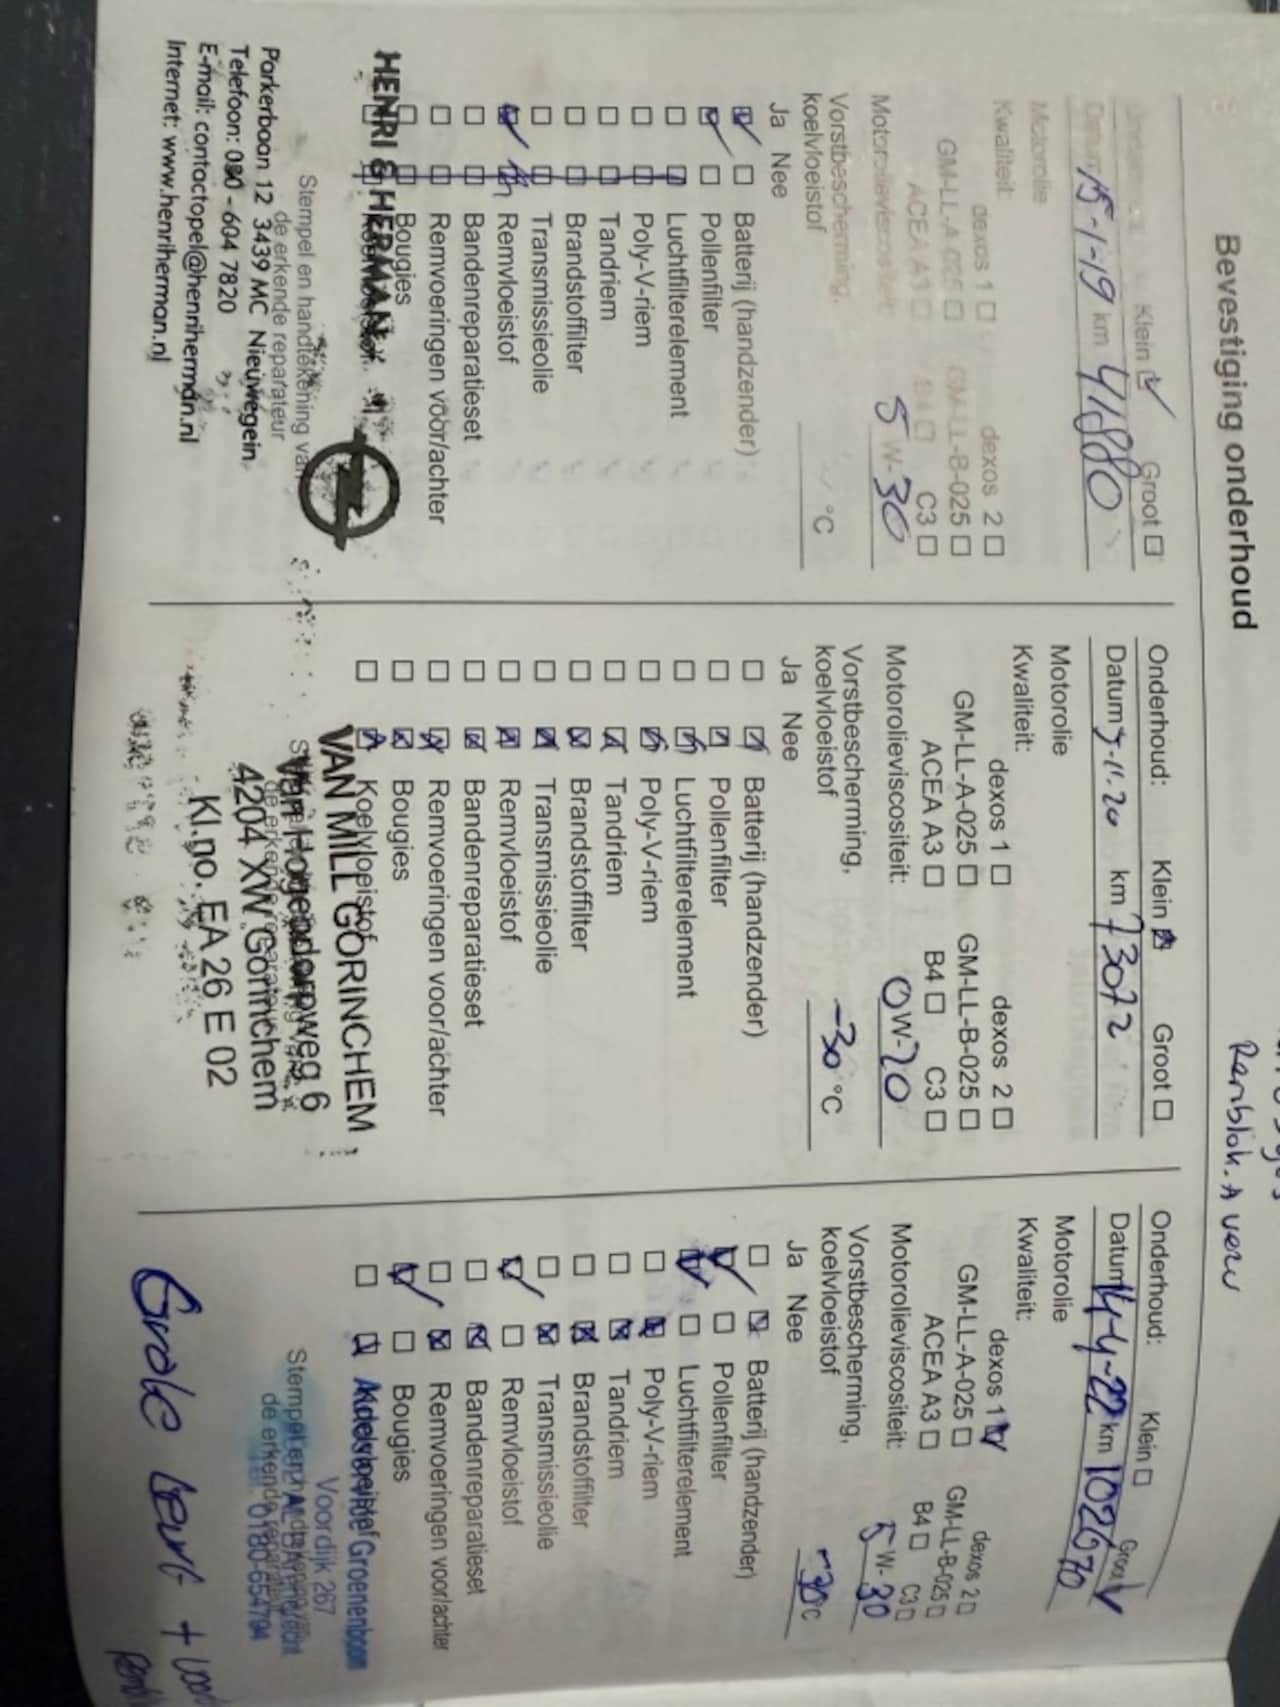 Bevestiging onderhoud
Remblok. A
Klein ☑ Groot ☐
Datum 15-1-19 km 41880
Motorolie
Kwaliteit: dexos 1 ☐ dexos 2 ☐
GM-LL-A-025 ☐ GM-LL-B-025 ☐
ACEA A3 ☐ B4 ☐ C3 ☐
Motorolieviscositeit: 5 W-30
Vorstbescherming,
koelvloeistof °C
Ja Nee
☑ ☐ Batterij (handzender)
☑ ☐ Pollenfilter
☐ ☑ Luchtfilterelement
☐ ☑ Poly-V-riem
☐ ☑ Tandriem
☐ ☑ Brandstoffilter
☐ ☑ Transmissieolie
☑ ☐ Remvloeistof
☐ ☑ Bandenreparatieset
☐ ☑ Remvoeringen voor/achter
☐ ☑ Bougies
HENRI & HERMAN
Stempel en handtekening van
de erkende reparateur
Parkerbaan 12 3439 MC Nieuwegein
Telefoon: 030 - 604 7820
E-mail: contactopel@henriherman.nl
Internet: www.henriherman.nl
Onderhoud: Klein ☒ Groot ☐
Datum 9-11-20 km 73072
Motorolie
Kwaliteit: dexos 1 ☐ dexos 2 ☐
GM-LL-A-025 ☐ GM-LL-B-025 ☐
ACEA A3 ☐ B4 ☐ C3 ☐
Motorolieviscositeit: 0W-20
Vorstbescherming,
koelvloeistof -30 °C
Ja Nee
☐ ☒ Batterij (handzender)
☐ ☒ Pollenfilter
☐ ☒ Luchtfilterelement
☐ ☒ Poly-V-riem
☐ ☒ Tandriem
☐ ☒ Brandstoffilter
☐ ☒ Transmissieolie
☐ ☒ Remvloeistof
☐ ☒ Bandenreparatieset
☐ ☒ Remvoeringen voor/achter
☐ ☒ Bougies
☐ ☒ Koelvloeistof
VAN MILL GORINCHEM
Van Hogendorpweg 6
4204 XW Gorinchem
Kl.no. EA 26 E 02
Onderhoud: Klein ☐ Groot ☑
Datum 14-4-22 km 102670
Motorolie
Kwaliteit: dexos 1 ☑ dexos 2 ☐
GM-LL-A-025 ☐ GM-LL-B-025 ☐
ACEA A3 ☐ B4 ☐ C3 ☐
Motorolieviscositeit: 5 W-30
Vorstbescherming,
koelvloeistof -30°C
Ja Nee
☐ ☒ Batterij (handzender)
☑ ☐ Pollenfilter
☑ ☐ Luchtfilterelement
☐ ☒ Poly-V-riem
☐ ☒ Tandriem
☐ ☒ Brandstoffilter
☐ ☒ Transmissieolie
☑ ☐ Remvloeistof
☐ ☒ Bandenreparatieset
☐ ☒ Remvoeringen voor/achter
☑ ☐ Bougies
☐ ☒ Koelvloeistof
Groenenboom
Voordijk 267
Stempel en handtekening van
de erkende reparateur
0180-654704
Grote beurt +